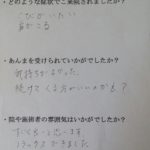 ・どのような症状でご来院されましたか？
くびがいたい
肩がこる
・あんまを受けられていかがでしたか？
気持ちがよかった。
続けてくる方がいいのかも？
・院や施術者の雰囲気はいかがでしたか？
すごく良いと思います
リラックスできました